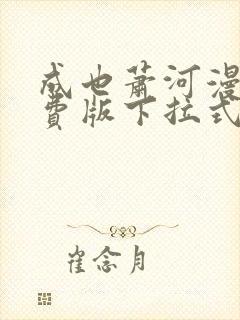 成也萧河漫
费版下拉式
崔念月